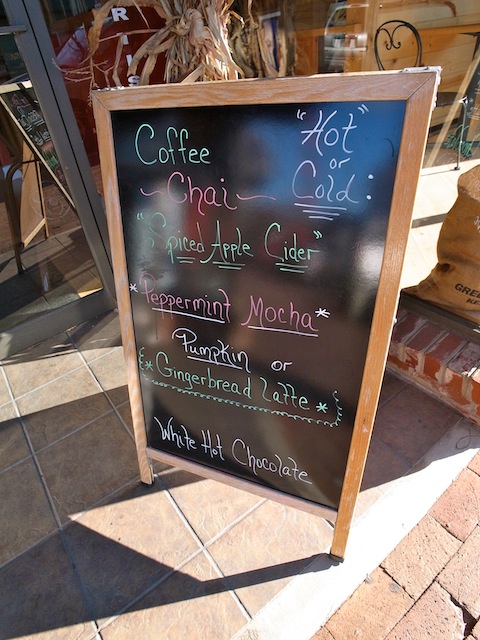 Coffee
"Hot"
or
Cold:
~Chai~
"Spiced Apple Cider"
*Peppermint Mocha*
Pumpkin or
*Gingerbread Latte*
White Hot Chocolate